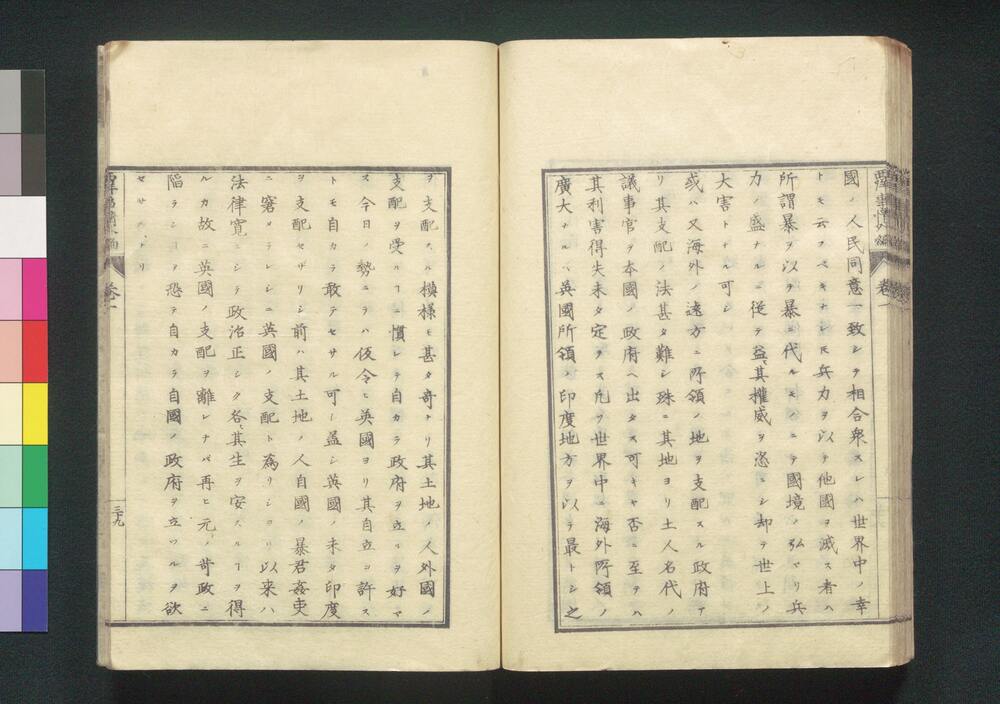 國ノ人民同意一致シテ相合衆スレハ世界中ノ幸
トモ云フベキナレ𪜈兵力ヲ以テ他國ヲ滅ス者ハ
所謂暴ヲ以テ暴ニ代ルモノニテ國境ノ弘マリ兵
力ノ盛ナルニ從テ益〻其權威ヲ恣ニシ却テ世上ノ
大害トナル可シ
或ハ又海外ノ遠方ニ所領ノ地ヲ支配スル政府ア
リ其支配ノ法甚タ難シ殊ニ其地ヨリ土人名代ノ
議事官ヲ本國ノ政府ヘ出タス可キヤ否ニ至テハ
其利害得失未タ定ラス凡ソ世界中ニ海外所領ノ
廣大ナルハ英國所領ノ印度地方ヲ以テ最トシ之
ヲ支配スル模様モ甚タ奇ナリ其土地ノ人外國ノ
支配ヲ受ルヿニ慣レテ自カラ政府ヲ立ルヲ好マ
ス今日ノ勢ニテハ仮令ヒ英國ヨリ其自立ヲ許ス
トモ自カラ敢テセサル可シ蓋シ英國ノ未タ印度
ヲ支配セザリシ前ハ其土地ノ人自國ノ暴君姦吏
ニ窘メラレシニ英國ノ支配ト為リシヨリ以来ハ
法律寛ニシテ政治正シク各〻其生ヲ安スルヿヲ得
ルカ故ニ英國ノ支配ヲ離レナバ再ヒ元ノ苛政ニ
陥ランヿヲ恐テ自カラ自國ノ政府ヲ立ツルヲ欲
セサルナリ
西洋事情外編
卷一
三十九